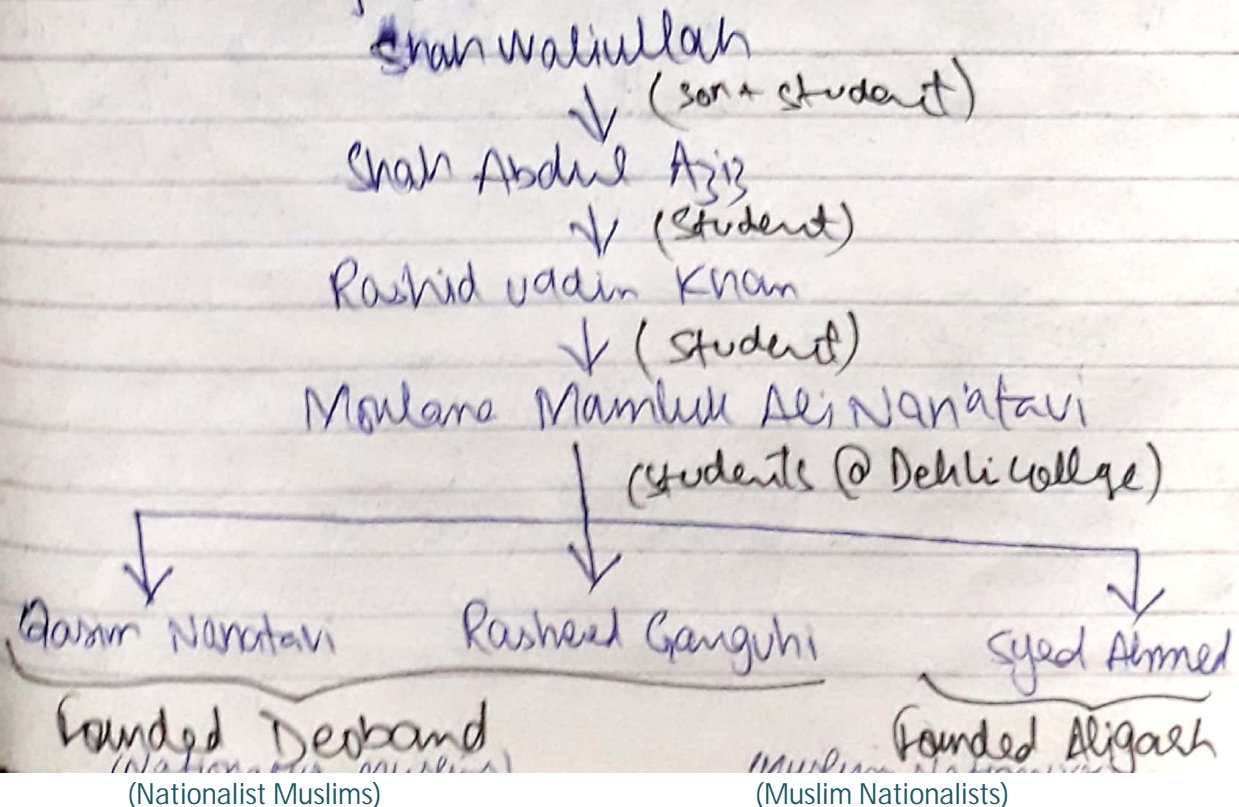 Shah Waliullah
(son + student)
Shah Abdul Aziz
(Student)
Rashid uddin Khan
(student)
Moulana Mamluk Ali Nan'atavi
(students @ Dehli College)
Qasim Nanatavi Rasheed Ganguhi Syed Ahmed
Founded Deoband Founded Aligarh
(Nationalist Muslims) (Muslim Nationalists)
(Nationalist Muslims) (Muslim Nationalists)